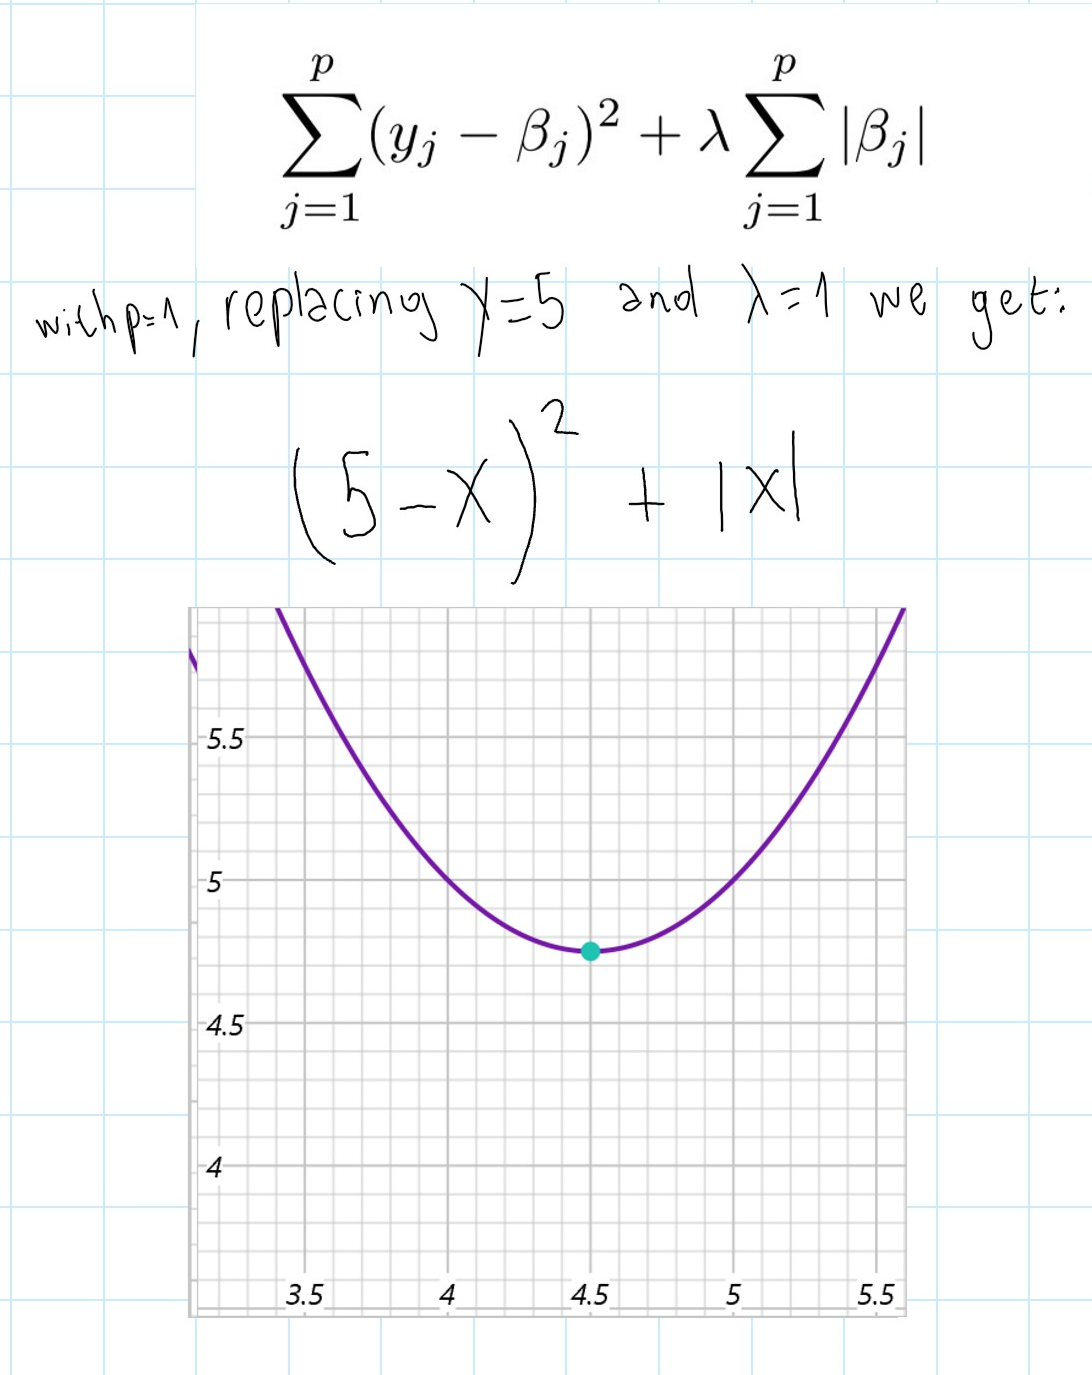 p p
∑(y_j − β_j)² + λ∑|β_j|
j=1 j=1
with p=1, replacing y=5 and λ=1 we get:
(5−x)² + |x|
5.5
5
4.5
4
3.5 4 4.5 5 5.5